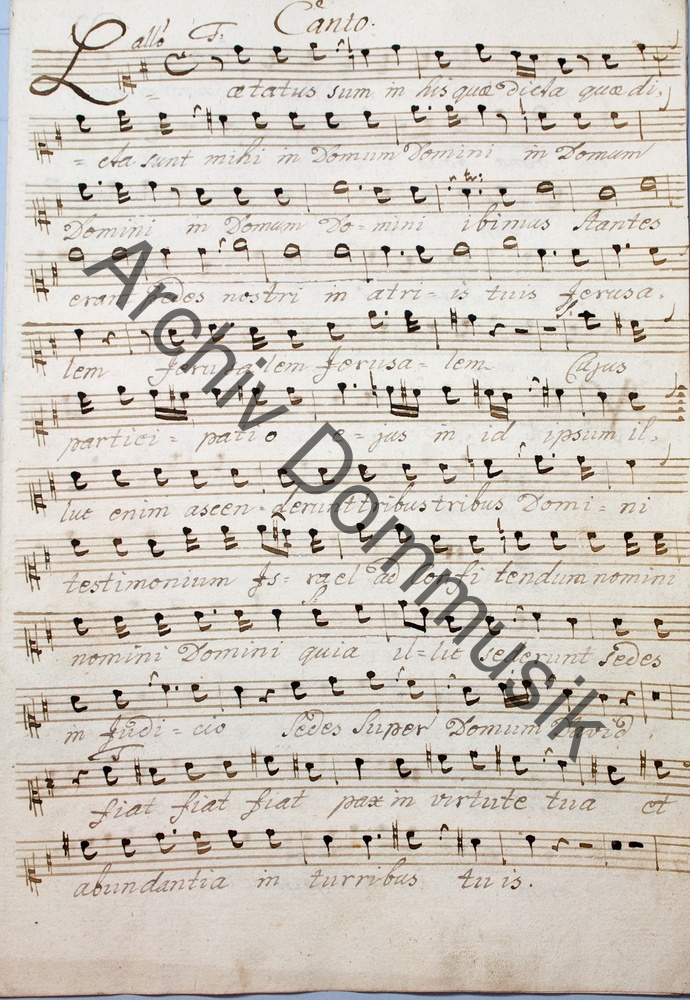 Canto.
allo T.
Lætatus sum in his quæ dicta quæ di,
= cta sunt mihi in Domum Domini in Domum
Domini in Domum Do = mini ibimus stantes
erant pedes nostri in atri = is tuis Jerusa,
lem Jerusalem Jerusa = lem Cujus
partici = patio e = jus in id ipsum il,
luc enim ascen = derunt tribus tribus Domi = ni
testimonium Js = rael ad confitendum nomini
nomini Domini quia il = lic sederunt sedes
in Judi = cio Sedes Super Domum David.
fiat fiat fiat pax in virtute tua et
abundantia in turribus tuis.
Archiv Dommusik